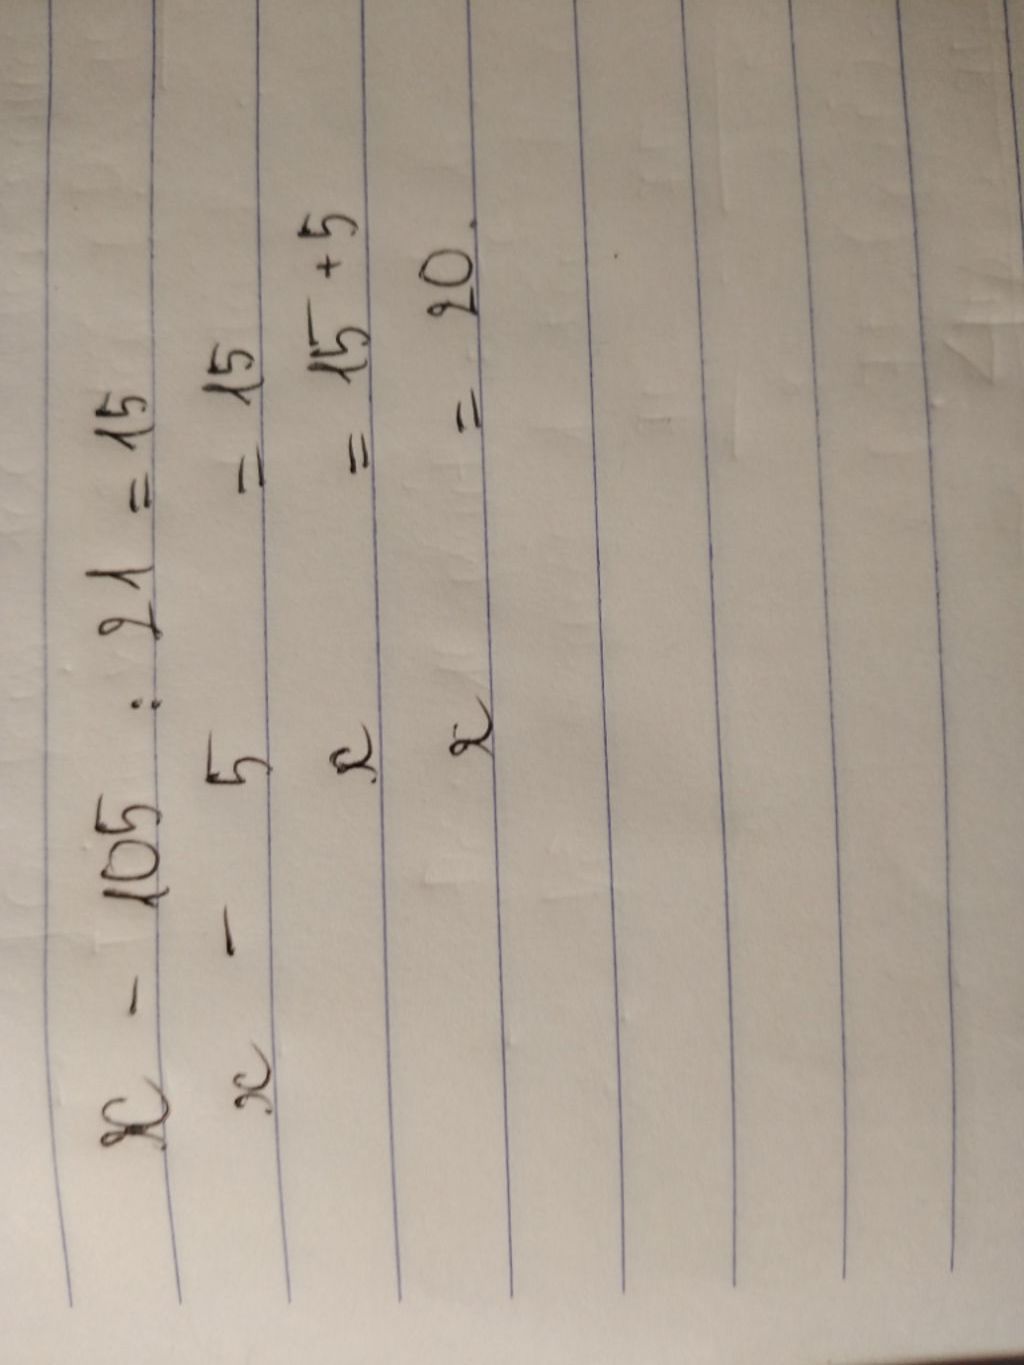 x - 105 : 21 = 15
x - 5 = 15
x = 15 + 5
x = 20.